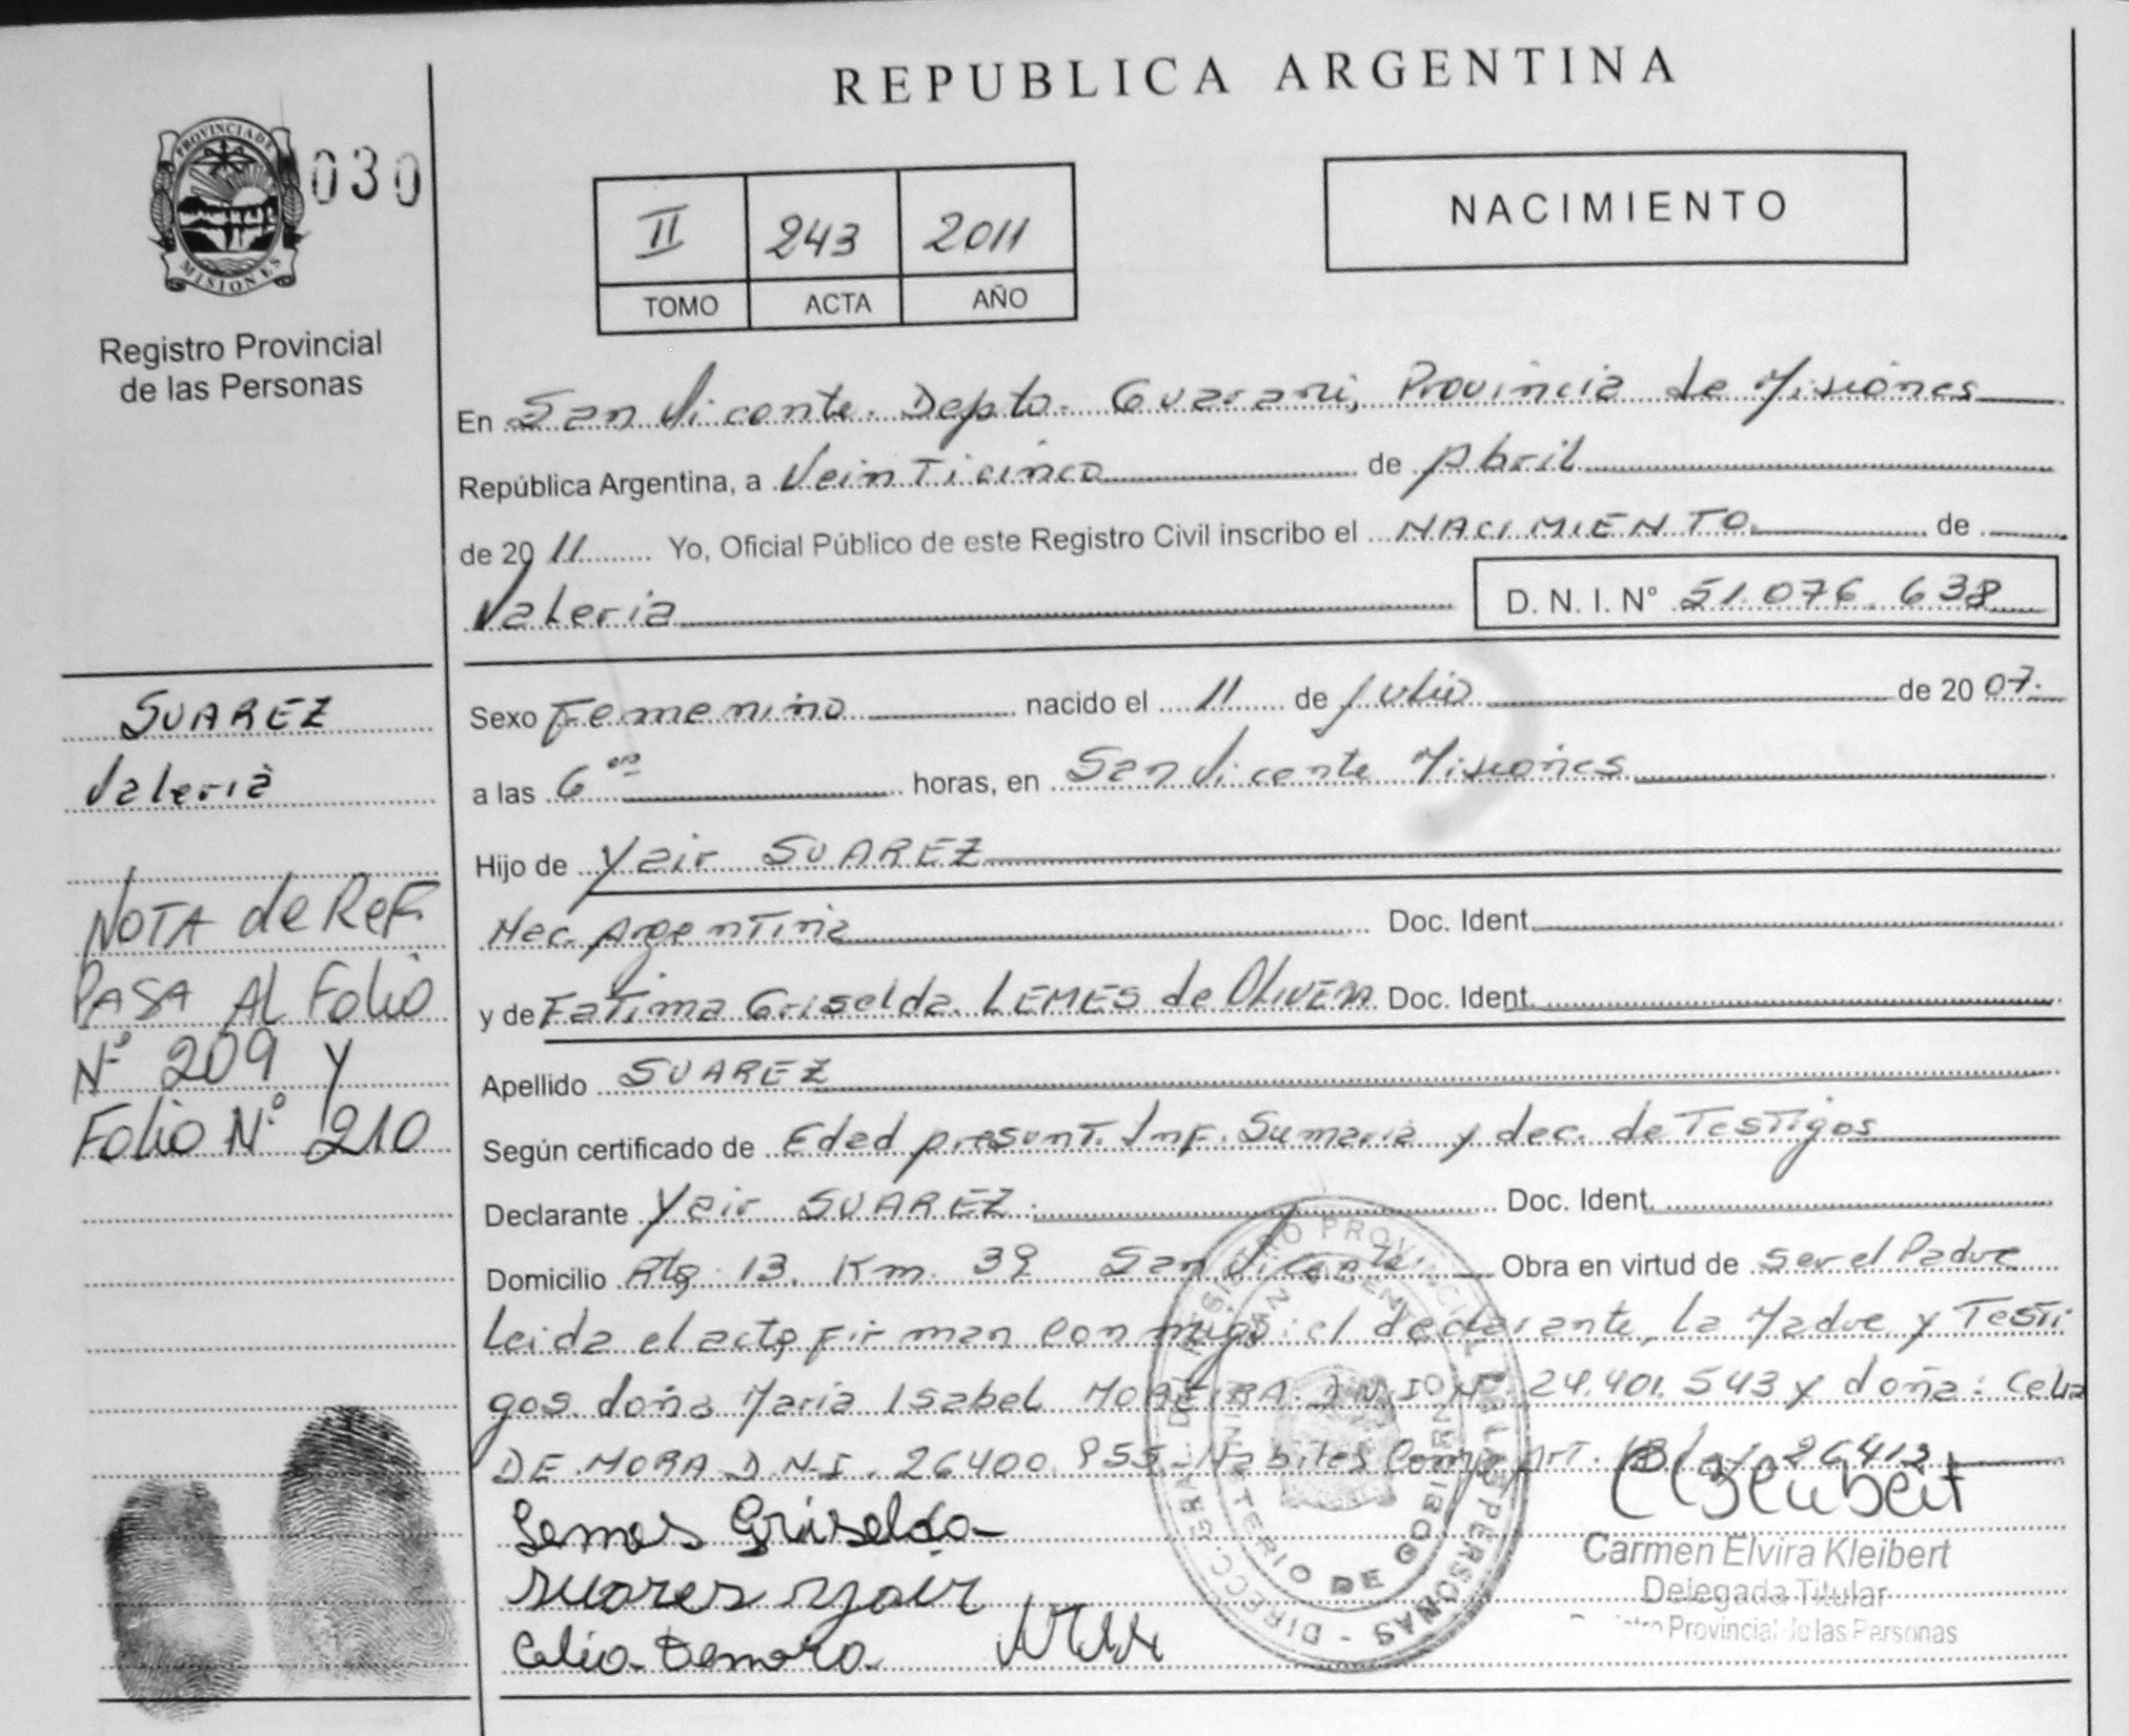 REPUBLICA ARGENTINA
PROVINCIA DE
MISIONES
030
Registro Provincial
de las Personas
II 243 2011
TOMO ACTA AÑO
NACIMIENTO
En San Vicente. Depto. Guarani, Provincia de Misiones
República Argentina, a Veinticinco de Abril
de 2011 Yo, Oficial Público de este Registro Civil inscribo el NACIMIENTO de
Valeria D. N. I. N° 51.076.638
SUAREZ
Valeria
NOTA de ReF.
PASA AL Folio
N° 209 y
Folio N° 210
Sexo Femenino nacido el 11 de Julio de 2007.
a las 6 horas, en San Vicente Misiones
Hijo de Yair SUAREZ
Nac. Argentina Doc. Ident.
y de Fatima Griselda LEMES de OLIVERA Doc. Ident.
Apellido SUAREZ
Según certificado de Edad presunt. Inf. Sumaria y dec. de Testigos
Declarante Yair SUAREZ. Doc. Ident.
Domicilio 13. Km. 39 San Vicente Obra en virtud de ser el Padre
Leida el acta firman conmigo: el declarante, la Madre y Testi
gos doña Maria Isabel MOREIRA D.N.I. N° 24.401.543 y doña: Celia
DE MORA D.N.I. 26400.955 - Habiles Art. 26413
Lemes Griselda
Suares Yair
Celia Demora
Carmen Elvira Kleibert
Delegada Titular
Provincial de las Personas